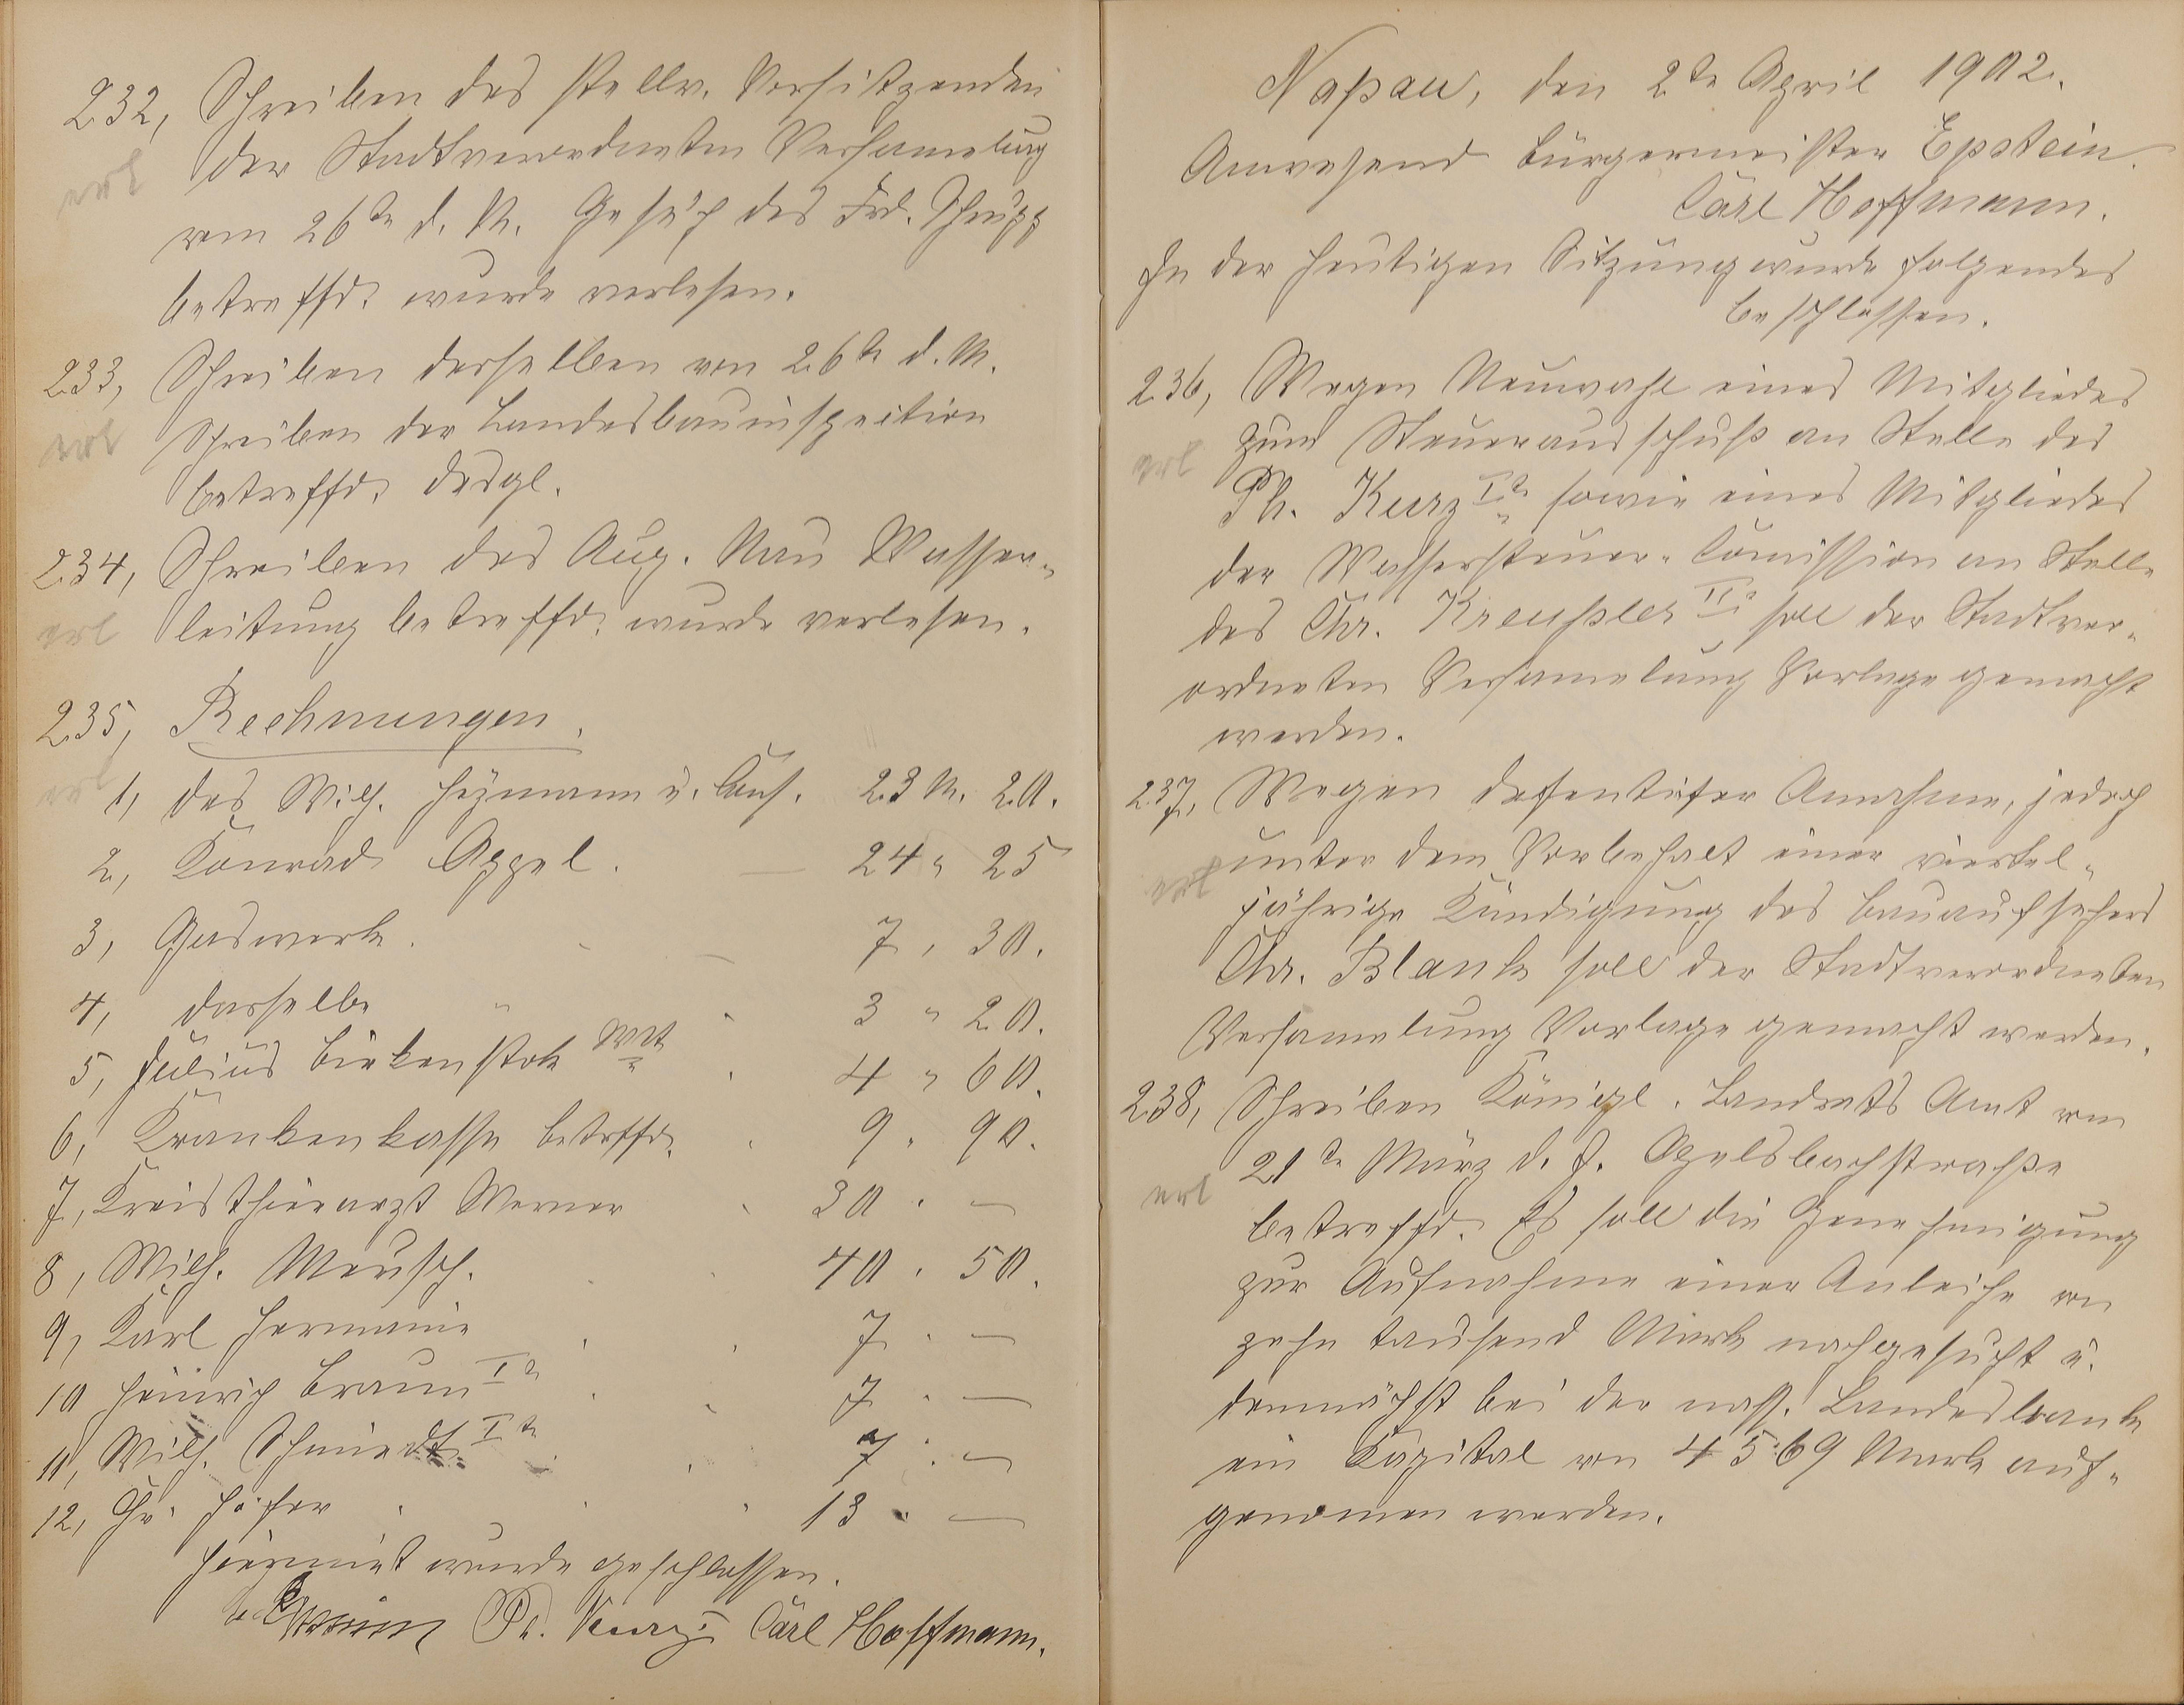 232, Schreiben des stellv. Vorsitzenden
erl
der Stadtverordneten Versamelung
vom 26te d. M. Gesuch des Frd. Schupp
betreffd. wurde verlesen.
233, Schreiben desselben vom 26te d. M.
erl
Schreiben der Landesbauinspection
betreffd. desgl.
234, Schreiben des Aug. Nau Wasser-
erl
leitung betreffd. wurde verlesen.
235, Rechnungen.
erl
1, des Wilh. Heymann u. Cons. 23 M. 20.
2, Konrad Appel. 24 " 25
3, Gaswerk. 7 " 30.
4, dasselbe " 3 " 20.
5, Julius Birkenstok Wt 4 " 60.
6, Krankenkasse betrffd. 9 " 90.
7, Kreisthierarzt Werner 30 " —
8, Wilh. Meusch. 40 " 50.
9, Karl Hermanie 7 " —
10 Heinrich Braun Ir 7 " —
11, Wilh. Schmiedt Ite 7 " —
12, Chr. Höfer 13 " —
Hiermit wurde geschlossen.
Ph. Kurz I Carl Hoffmann.
Naßau, den 2te April 1902.
Anwesend Bürgermeister Epstein.
Carl Hoffmann.
In der heutigen Sitzung wurde folgendes
beschlossen.
236, Wegen Neuwahl eines Mitgliedes
zum Steuerausschuß an Stelle des
erl
Ph. Kurz Ir sowie eines Mitgliedes
der Wassersteuer-Comission an Stelle
des Chr. Kreußler IIr soll der Stadtver-
ordneten Versamelung Vorlage gemacht
werden.
237, Wegen defentifer Annahme, jedoch
unter dem Vorbehalt einer viertel-
erl
jährige Kündigung des Bauaufsehers
Chr. Blank soll der Stadtverordneten
Versamelung Vorlage gemacht werden.
238, Schreiben Königl. Landrats Amt vom
21te März d. J. Oelsbachstraße
erl
betreffd. Es soll die Genehmigung
zur Aufnahme einer Anleihe von
zehn tausend Mark nachgesucht u.
demnächst bei der nass. Landesbank
ein Kapital von 4569 Mark auf-
genomen werden.